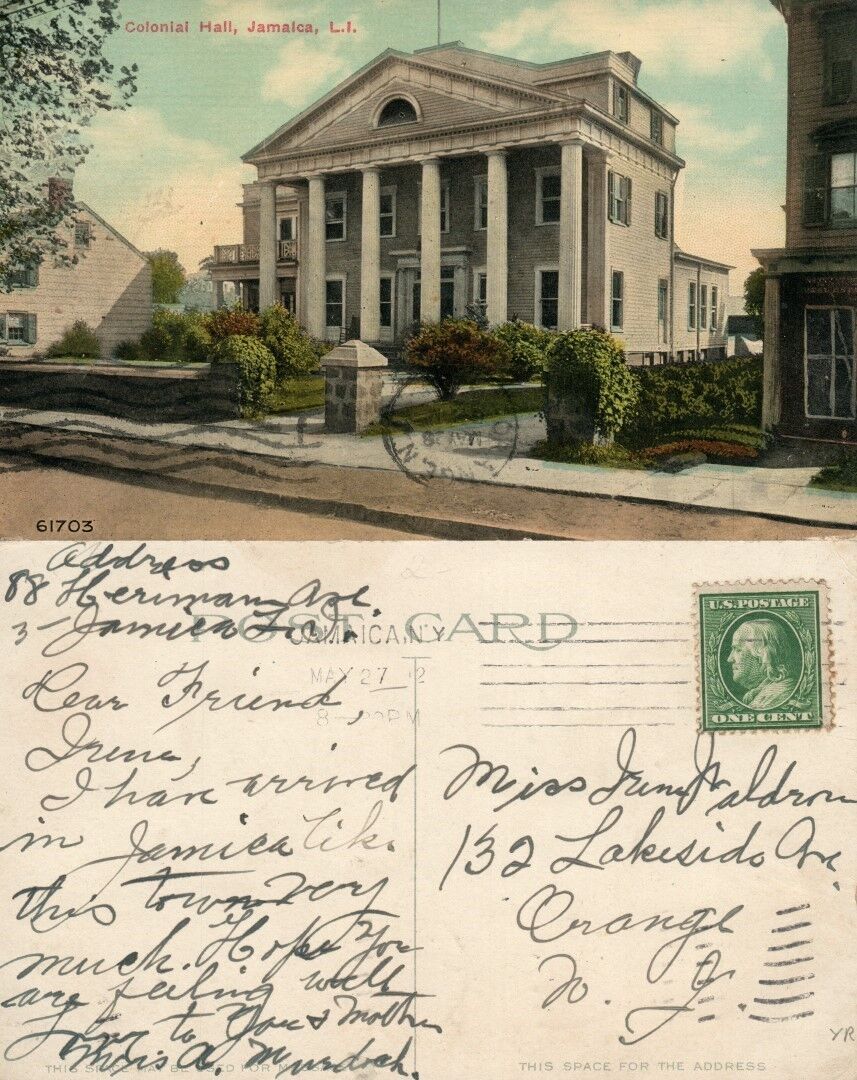 Colonial Hall, Jamaica, L.I.
61703
POST CARD
Address
88 Herriman Ave.
Jamaica L.I.
JAMAICA, N.Y.
MAY 27 12
8-00PM
U.S. POSTAGE
ONE CENT
Dear Friend
Irene,
I have arrived
in Jamica Like
this town very
much. Hope you
are feeling well
Love to You & Mother
A. Murdock.
Miss Irene Waldron
132 Lakeside Ave.
Orange
N. J.
THIS SPACE MAY BE USED FOR
THIS SPACE FOR THE ADDRESS
YR